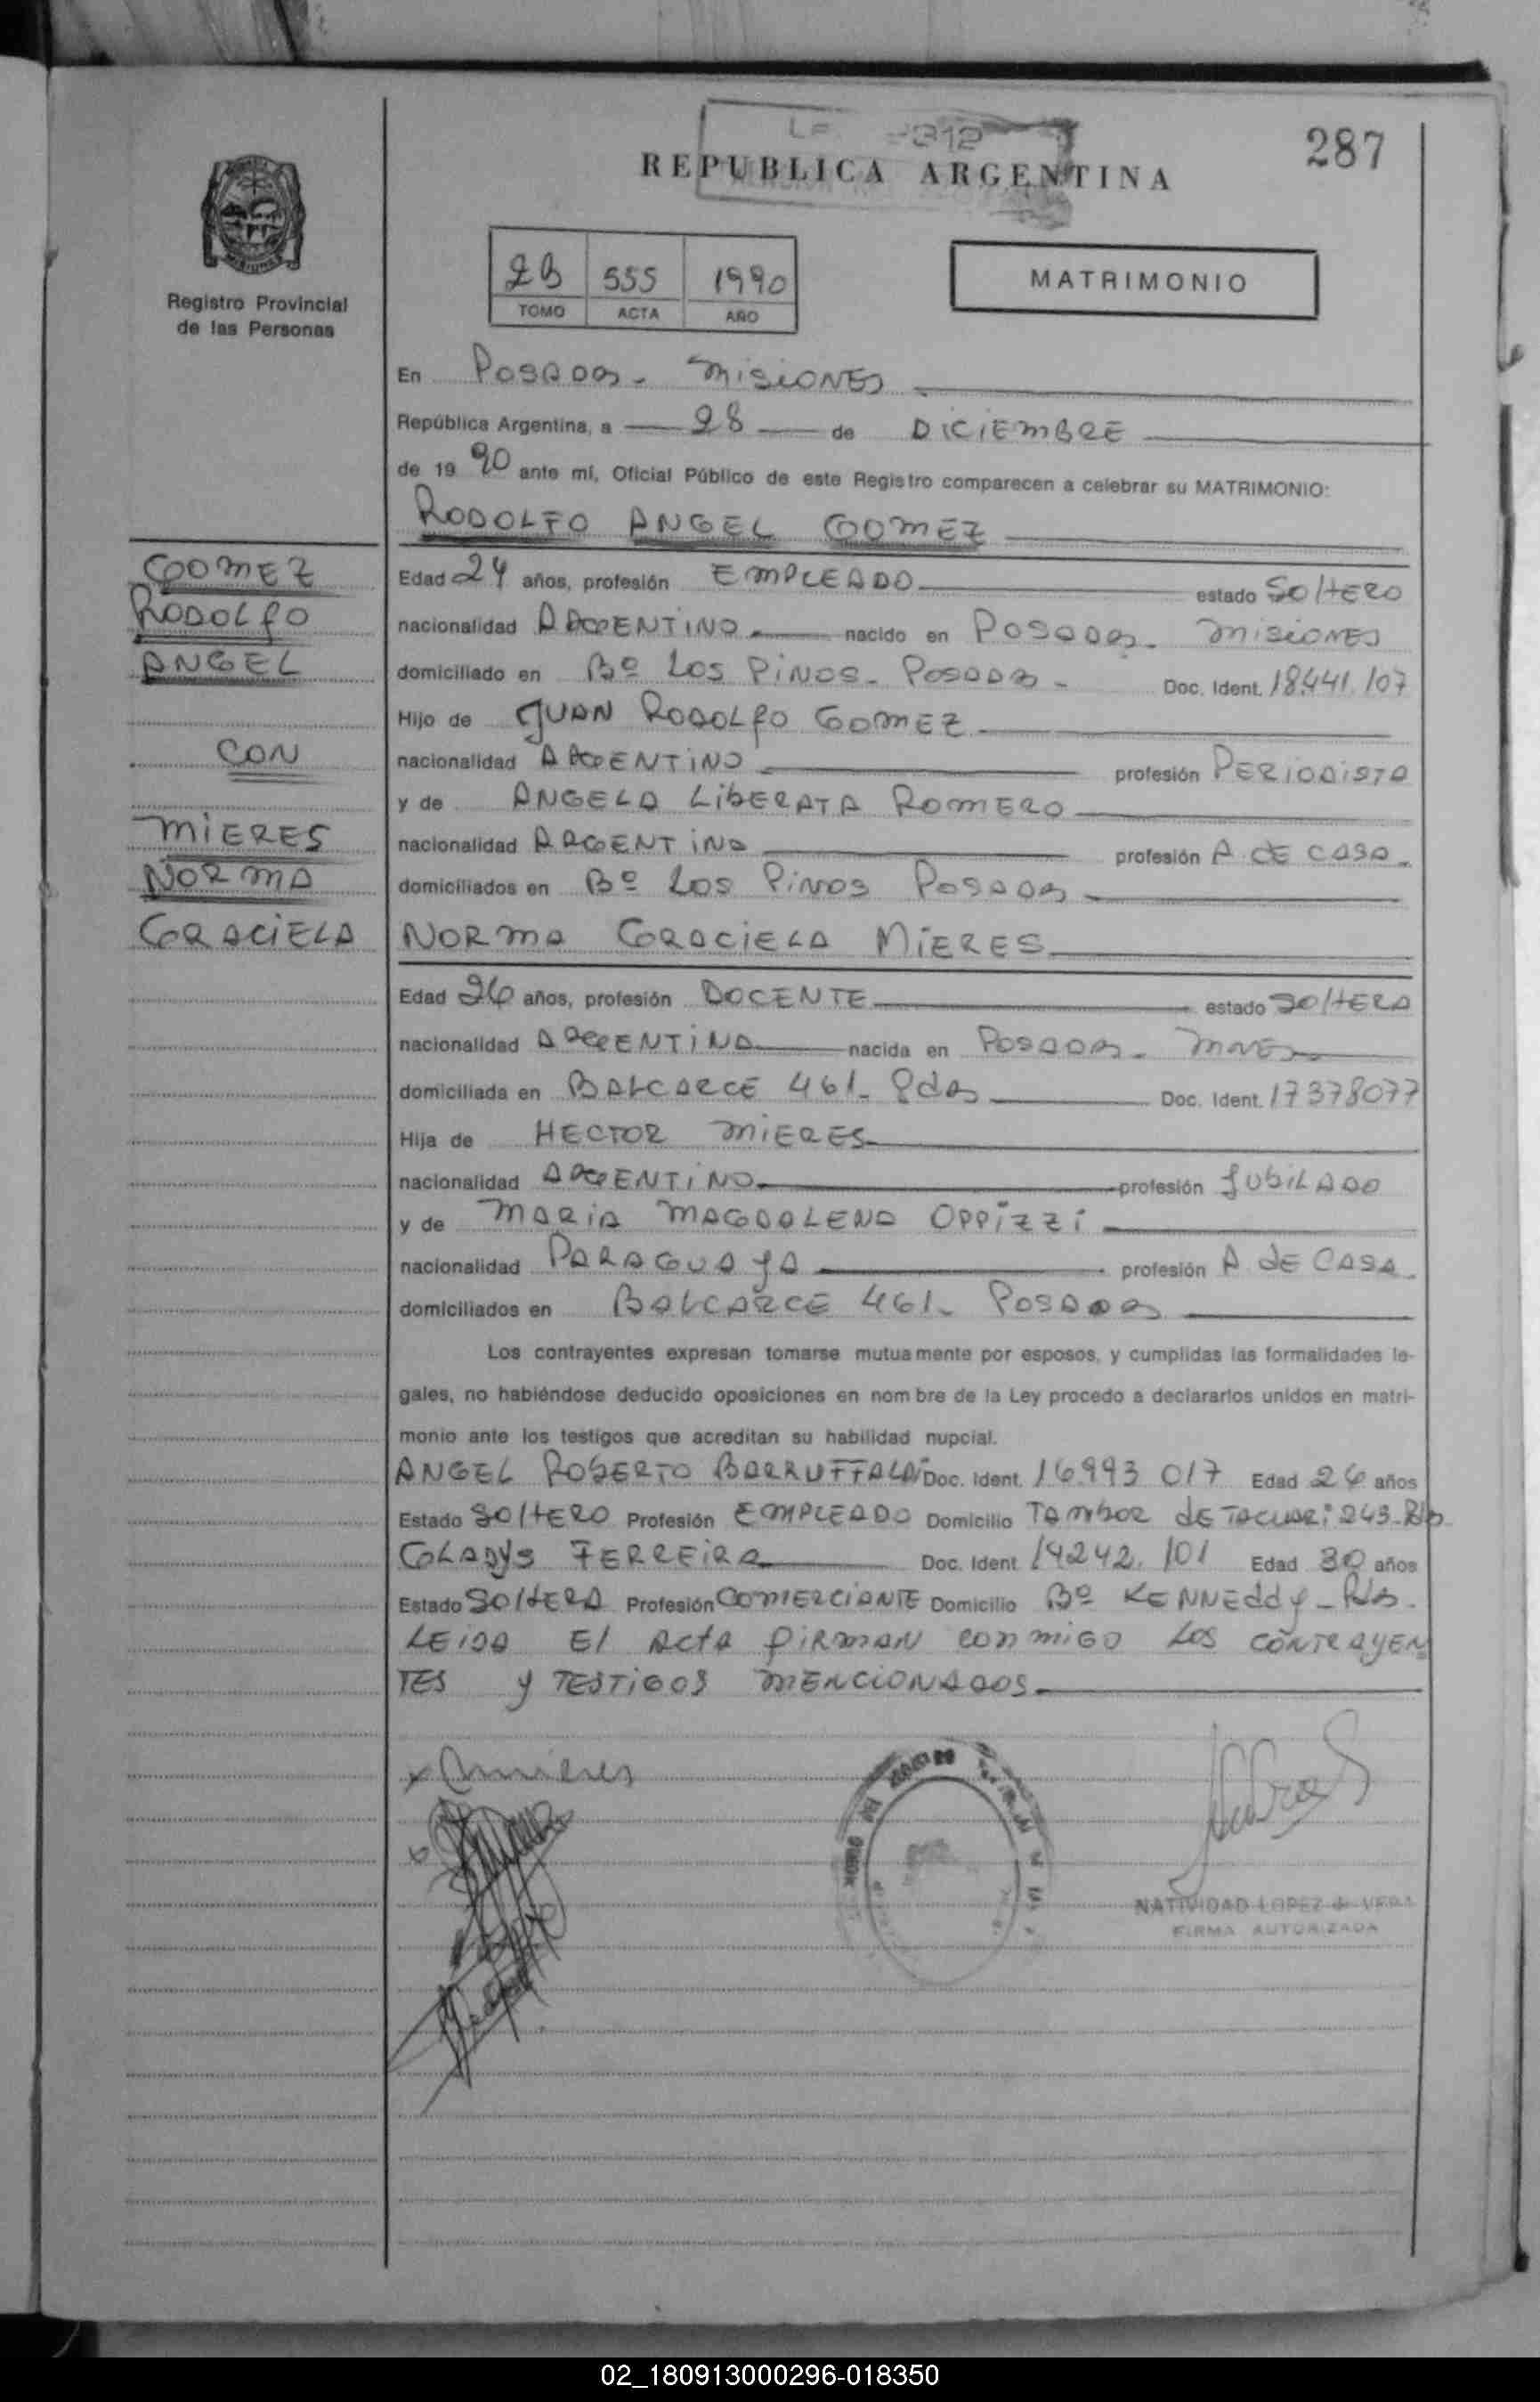 LF 312
287
REPUBLICA ARGENTINA
MISIONES
Registro Provincial
de las Personas
2B 555 1990
TOMO ACTA AÑO
MATRIMONIO
En POSADAS - MISIONES
República Argentina, a 28 de DICIEMBRE
de 19 90 ante mí, Oficial Público de este Registro comparecen a celebrar su MATRIMONIO:
RODOLFO ANGEL GOMEZ
GOMEZ
RODOLFO
ANGEL
CON
MIERES
NORMA
GRACIELA
Edad 24 años, profesión EMPLEADO estado SOLTERO
nacionalidad ARGENTINO nacido en POSADAS - MISIONES
domiciliado en Bº LOS PINOS - POSADAS - Doc. Ident. 18.441.107
Hijo de JUAN RODOLFO GOMEZ
nacionalidad ARGENTINO profesión PERIODISTA
y de ANGELA LIBERATA ROMERO
nacionalidad ARGENTINA profesión A. DE CASA.
domiciliados en Bº LOS PINOS POSADAS
NORMA GRACIELA MIERES
Edad 26 años, profesión DOCENTE estado SOLTERA
nacionalidad ARGENTINA nacida en POSADAS - MNES
domiciliada en BALCARCE 461 - Pdas Doc. Ident. 17378077
Hija de HECTOR MIERES
nacionalidad ARGENTINO profesión JUBILADO
y de MARIA MAGDALENA OPPIZZI
nacionalidad PARAGUAYA profesión A. DE CASA.
domiciliados en BALCARCE 461 - POSADAS
Los contrayentes expresan tomarse mutuamente por esposos, y cumplidas las formalidades le-
gales, no habiéndose deducido oposiciones en nombre de la Ley procedo a declararlos unidos en matri-
monio ante los testigos que acreditan su habilidad nupcial.
ANGEL ROBERTO BARRUFFALDI Doc. Ident. 16.993 017 Edad 26 años
Estado SOLTERO Profesión EMPLEADO Domicilio TAMBOR DE TACUARI 243 - Pdas
GLADYS FERREIRA Doc. Ident 14242.101 Edad 30 años
Estado SOLTERA Profesión COMERCIANTE Domicilio Bº KENNEDDY - Pdas.
LEIDA El ACTA FIRMAN CONMIGO LOS CONTRAYEN
TES Y TESTIGOS MENCIONADOS
NATIVIDAD LOPEZ de VERA
FIRMA AUTORIZADA
02_180913000296-018350